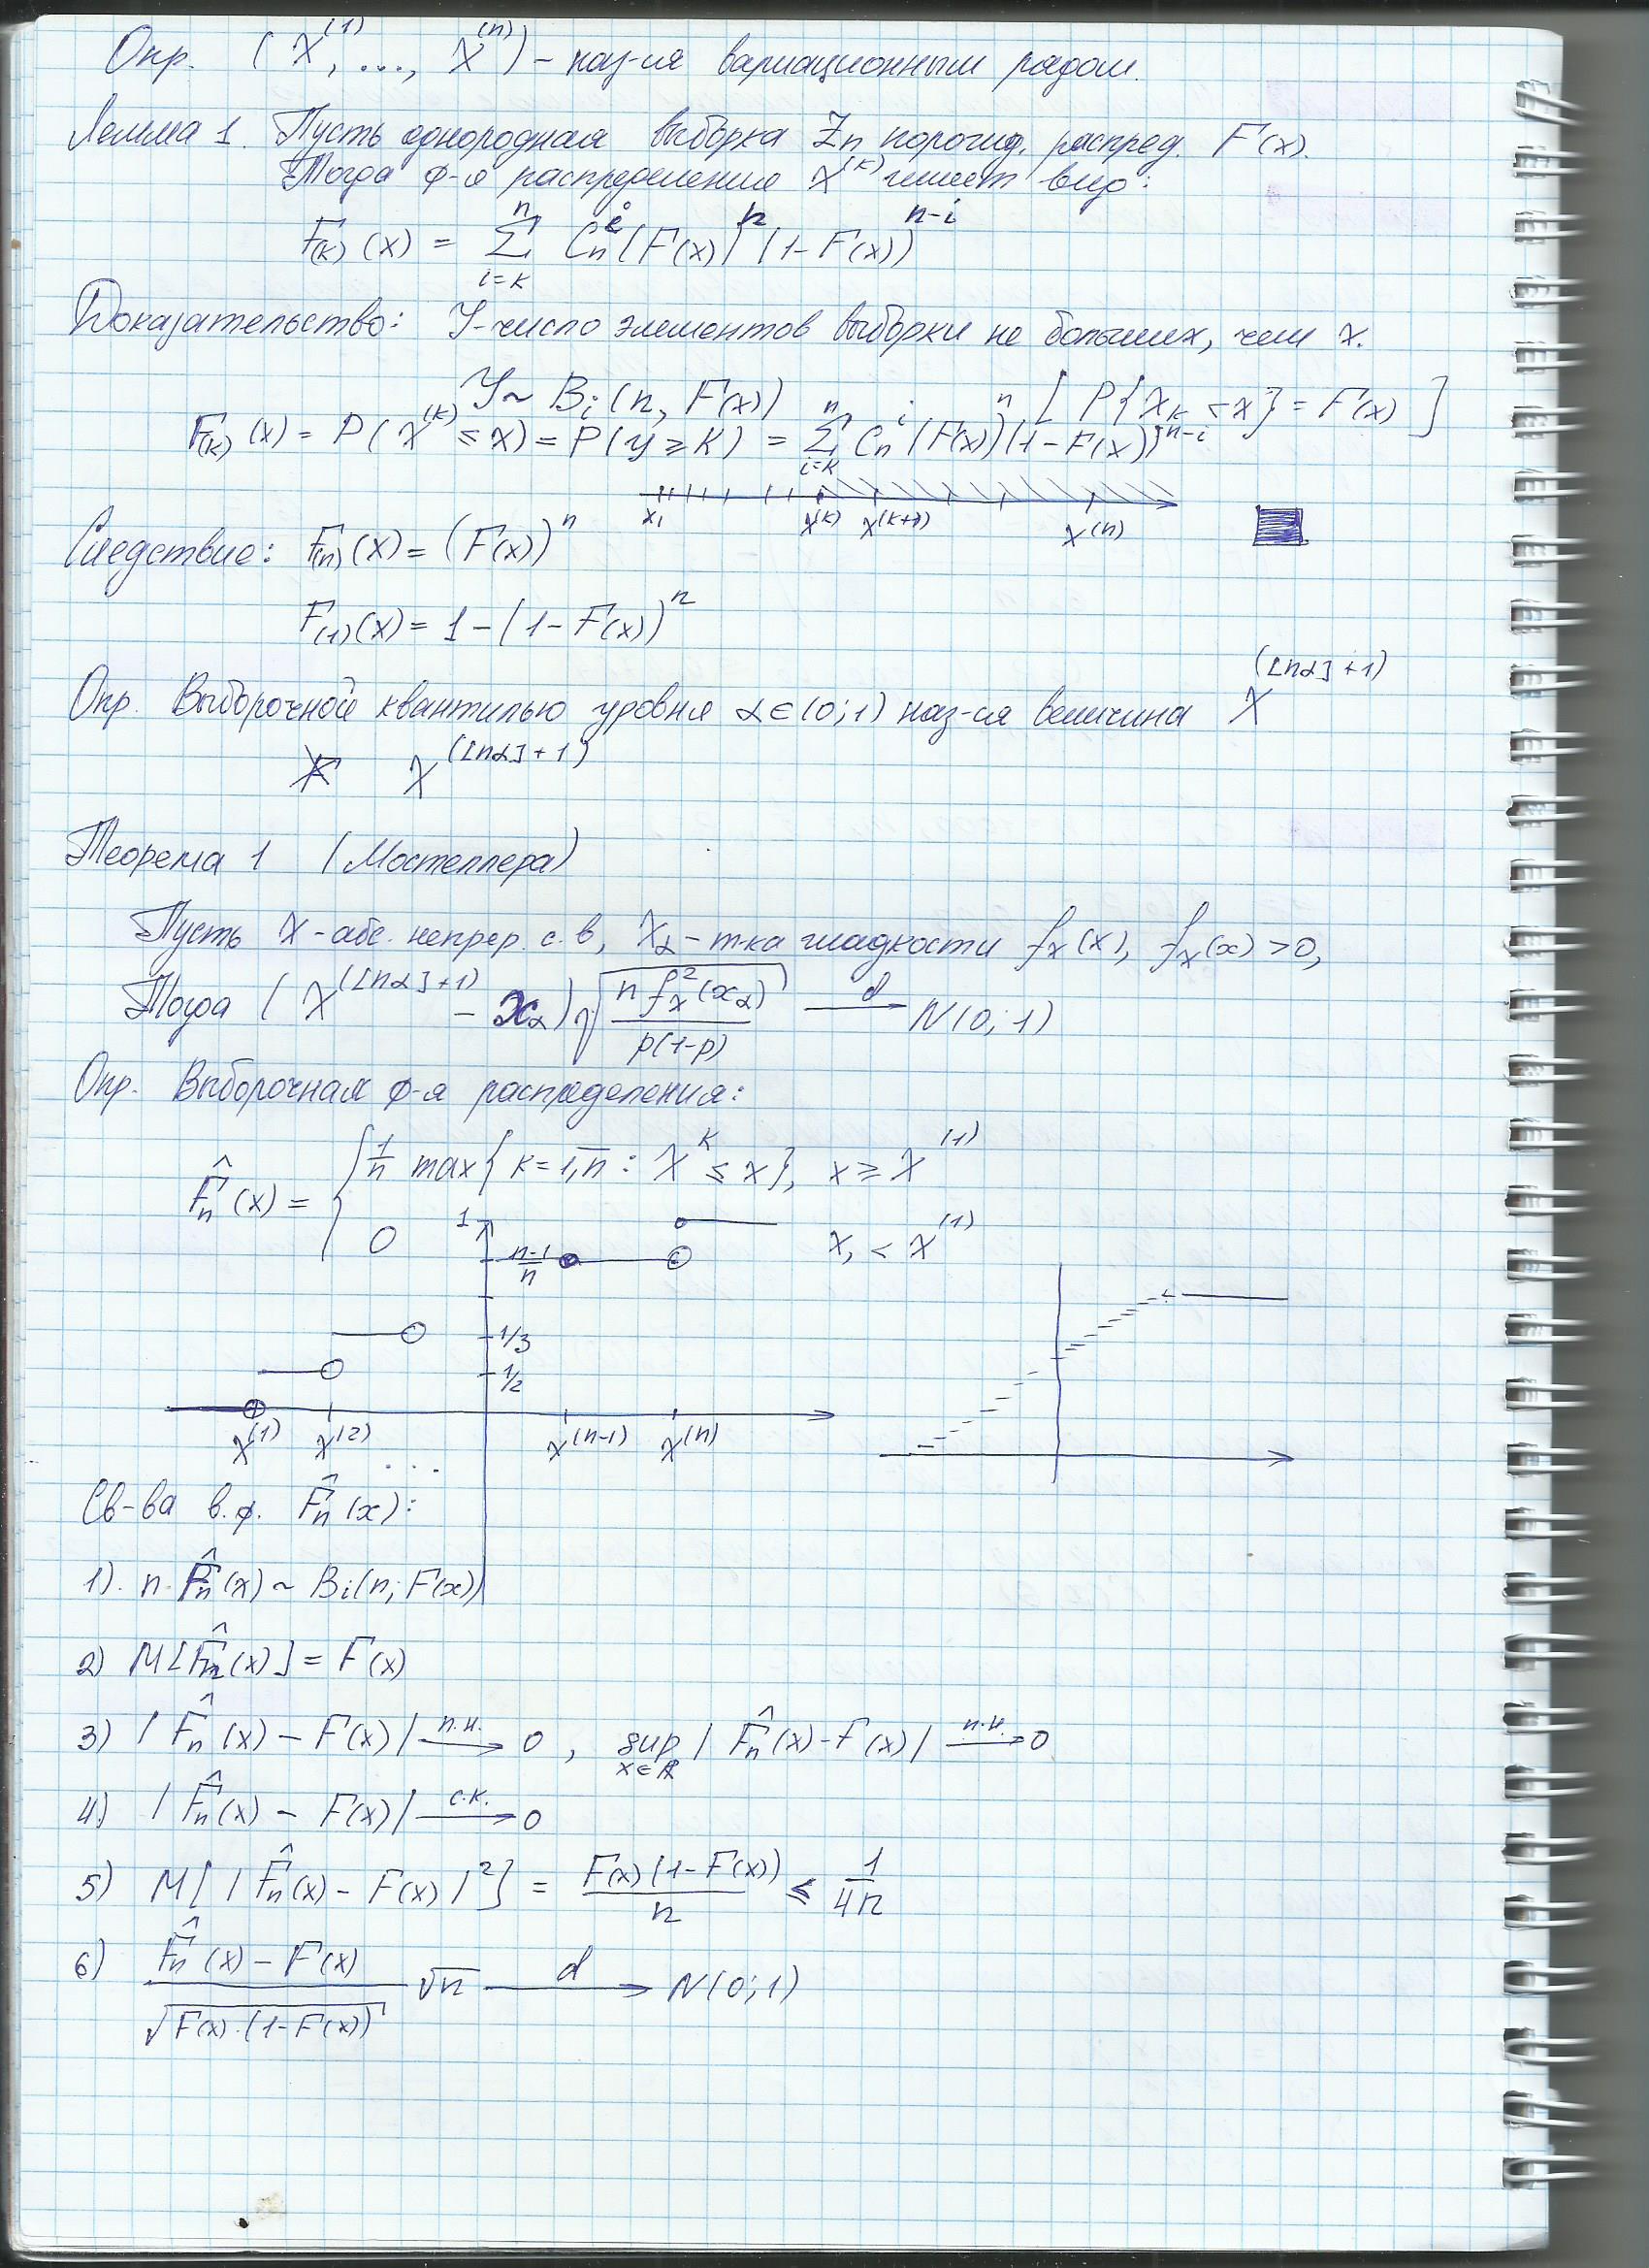 Опр. (X^(1), ..., X^(n)) – наз-ся вариационным рядом.
Лемма 1. Пусть однородная выборка Zn порожд. распред. F(x).
Тогда ф-я распределения X^(k) имеет вид:
F(k)(x) = Σ_{i=k}^{n} C_n^i (F(x))^n (1-F(x))^{n-i}
Доказательство: Y-число элементов выборки не больших, чем x.
Y ~ Bi(n, F(x)) [P{X_k ≤ x} = F(x)]
F(k)(x) = P(X^(k) ≤ x) = P(y ≥ k) = Σ_{i=k}^{n} C_n^i (F(x))^n (1-F(x))^{n-i}
x_1 X^(k) X^(k+1) X^(n)
Следствие: F(n)(x) = (F(x))^n
F(1)(x) = 1-(1-F(x))^n
Опр. Выборочной квантилью уровня α∈(0;1) наз-ся величина X^([nα]+1)
X^([nα]+1)
Теорема 1 (Мостеллера)
Пусть X-абс. непрер. с.в, X_α – т-ка гладкости f_X(x), f_X(x) > 0,
Тогда (X^([nα]+1) - x_α) √(n f_X^2(x_α) / p(1-p)) →^d N(0;1)
Опр. Выборочная ф-я распределения:
F̂_n(x) = { 1/n max{k=1,n̅ : X^k ≤ x}, x ≥ X^(1)
0 x, < X^(1)
1
n-1/n
1/3
1/2
X^(1) X^(2) ... X^(n-1) X^(n)
Св-ва в.ф. F̂_n(x):
1). n·F̂_n(x) ~ Bi(n; F(x))
2) M[F̂_n(x)] = F(x)
3) |F̂_n(x) – F(x)| →^{п.н.} 0, sup_{x∈ℝ} |F̂_n(x) - F(x)| →^{п.н.} 0
4) |F̂_n(x) – F(x)| →^{с.к.} 0
5) M[|F̂_n(x) - F(x)|^2] = F(x)(1-F(x)) / n ≤ 1/4n
6) F̂_n(x) – F(x) / √(F(x)·(1-F(x))) √n →^d N(0;1)